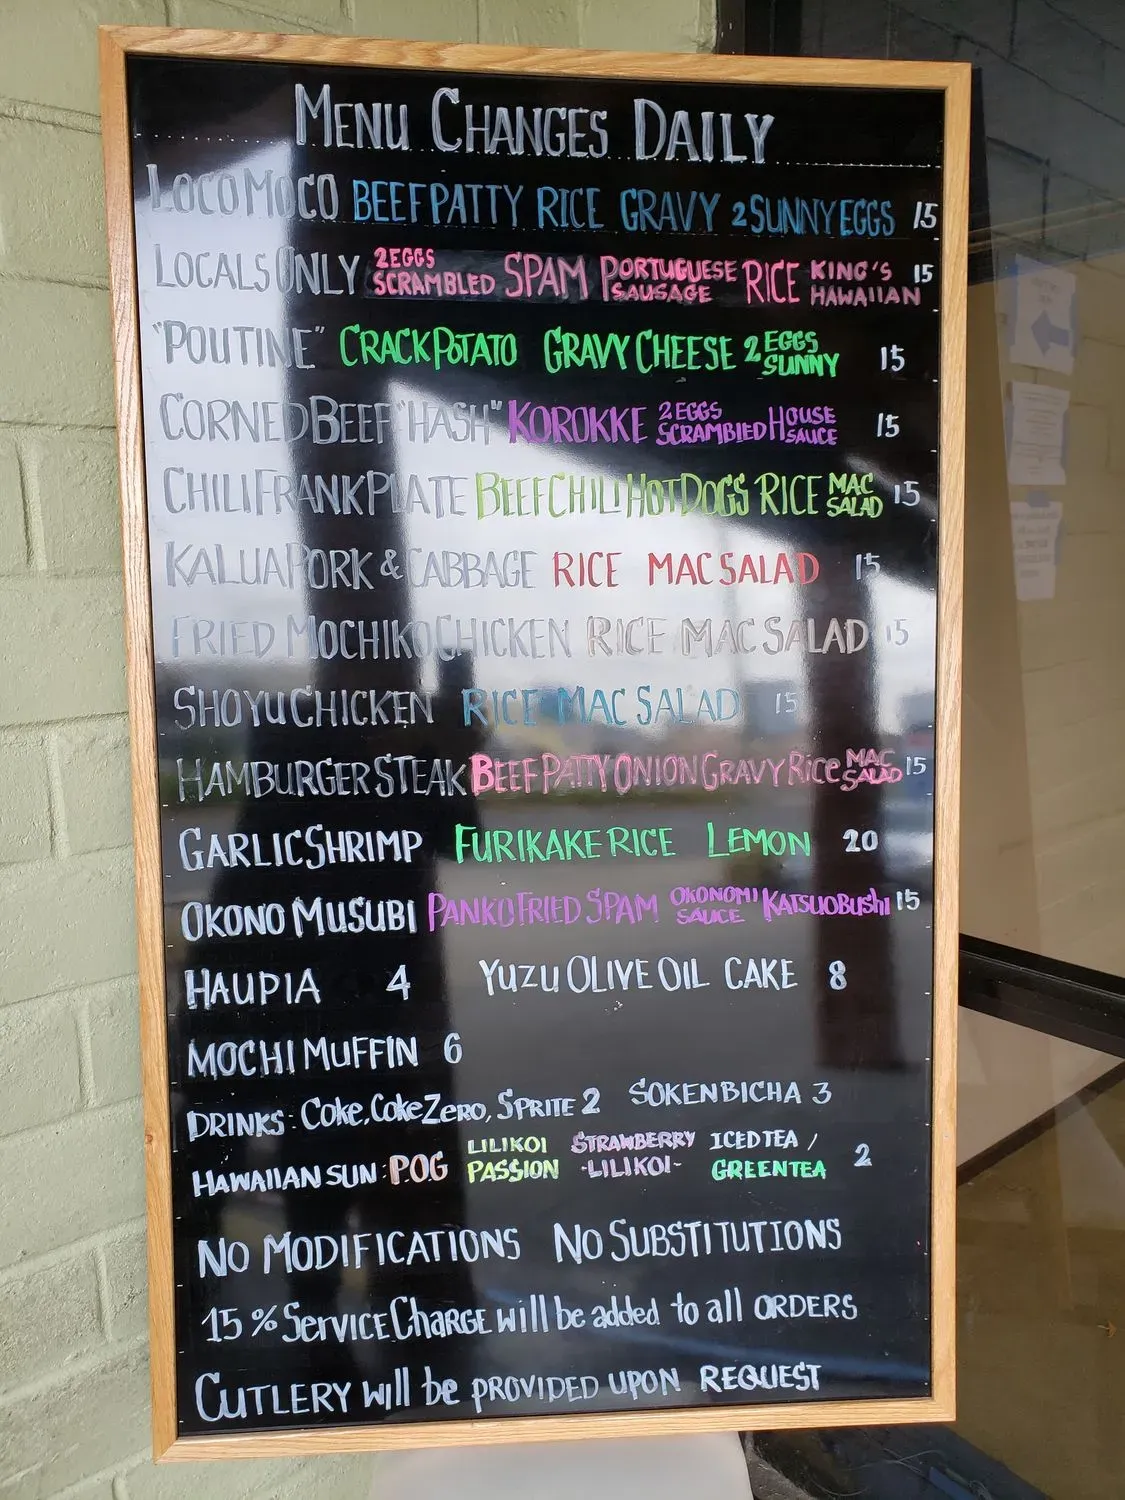 MENU CHANGES DAILY
LOCO MOCO BEEF PATTY RICE GRAVY 2 SUNNY EGGS 15
LOCALS ONLY 2 EGGS SCRAMBLED SPAM PORTUGUESE SAUSAGE RICE KING'S HAWAIIAN 15
"POUTINE" CRACK POTATO GRAVY CHEESE 2 EGGS SUNNY 15
CORNED BEEF "HASH" KOROKKE 2 EGGS SCRAMBLED HOUSE SAUCE 15
CHILI FRANK PLATE BEEF CHILI HOT DOGS RICE MAC SALAD 15
KALUA PORK & CABBAGE RICE MAC SALAD 15
FRIED MOCHIKO CHICKEN RICE MAC SALAD 15
SHOYU CHICKEN RICE MAC SALAD 15
HAMBURGER STEAK BEEF PATTY ONION GRAVY RICE MAC SALAD 15
GARLIC SHRIMP FURIKAKE RICE LEMON 20
OKONO MUSUBI PANKO FRIED SPAM OKONOMI SAUCE KATSUOBUSHI 15
HAUPIA 4 YUZU OLIVE OIL CAKE 8
MOCHI MUFFIN 6
DRINKS: COKE, COKE ZERO, SPRITE 2 SOKENBICHA 3
HAWAIIAN SUN: P.O.G LILIKOI PASSION STRAWBERRY -LILIKOI- ICED TEA / GREEN TEA 2
NO MODIFICATIONS NO SUBSTITUTIONS
15% SERVICE CHARGE will be added to all ORDERS
CUTLERY will be PROVIDED UPON REQUEST